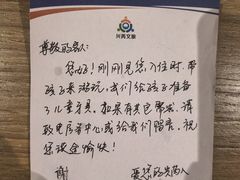 兴芮文旅
尊敬的客人：
您好！刚刚见您入住时，带
孩子来游玩，我们给孩子准备
了儿童牙具，如果有其它需求，请
致电房务中心或给我们留言，祝
您旅途愉快！
爱您的